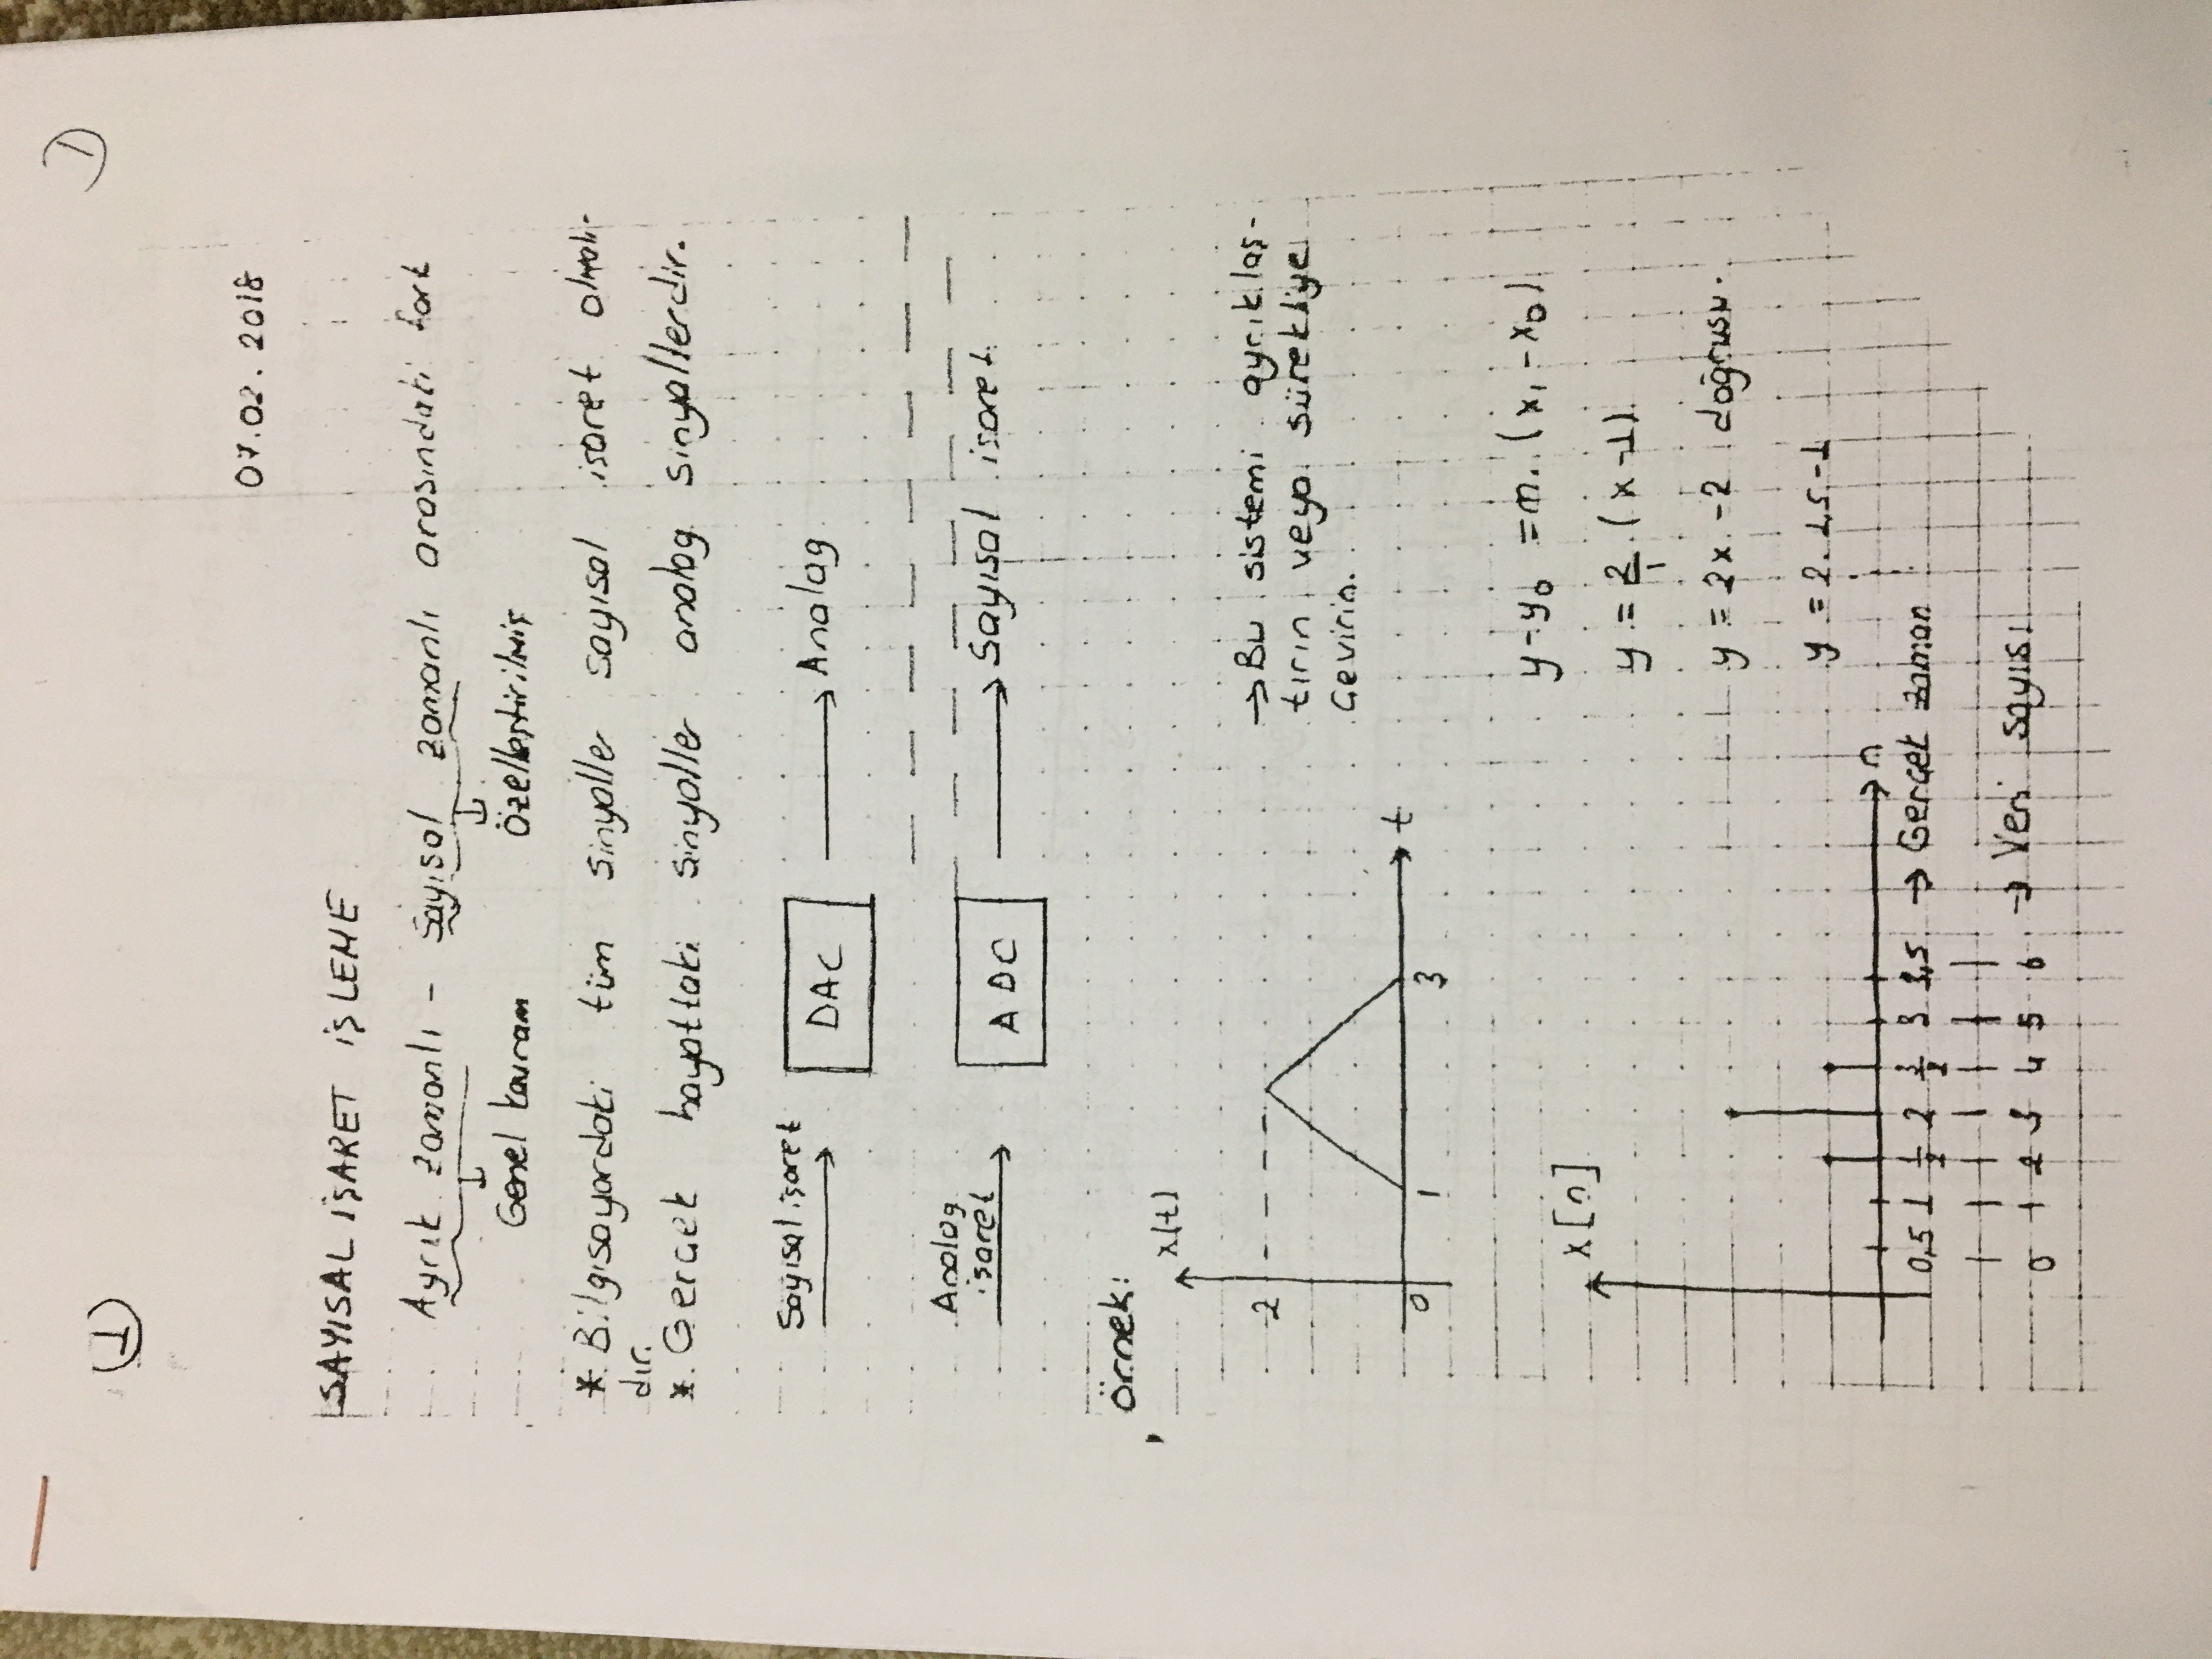 1
1
07.02.2018
SAYISAL İŞARET İŞLEME
Ayrık zamanlı - Sayısal zamanlı arasındaki fark
Genel kavram Özelleştirilmiş
* Bilgisayardaki tüm sinyaller sayısal işaret olmalı-
dır.
* Gerçek hayattaki sinyaller analog sinyallerdir.
Sayısal işaret
DAC
Analog
Analog
işaret
ADC
Sayısal işaret
Örnek:
x(t)
2
0 1 3 t
→ Bu sistemi ayrıklaş-
tırın veya sürekliye
Çevirin.
y-y₀ = m.(x₁-x₀)
y = 2/1.(x-1)
y = 2x-2 doğrusu.
y = 2.1,5-1
x[n]
n
0,5 1 1/2 2 3/2 3 3,5 → Gerçek zaman
0 1 2 3 4 5 6 → Veri sayısı